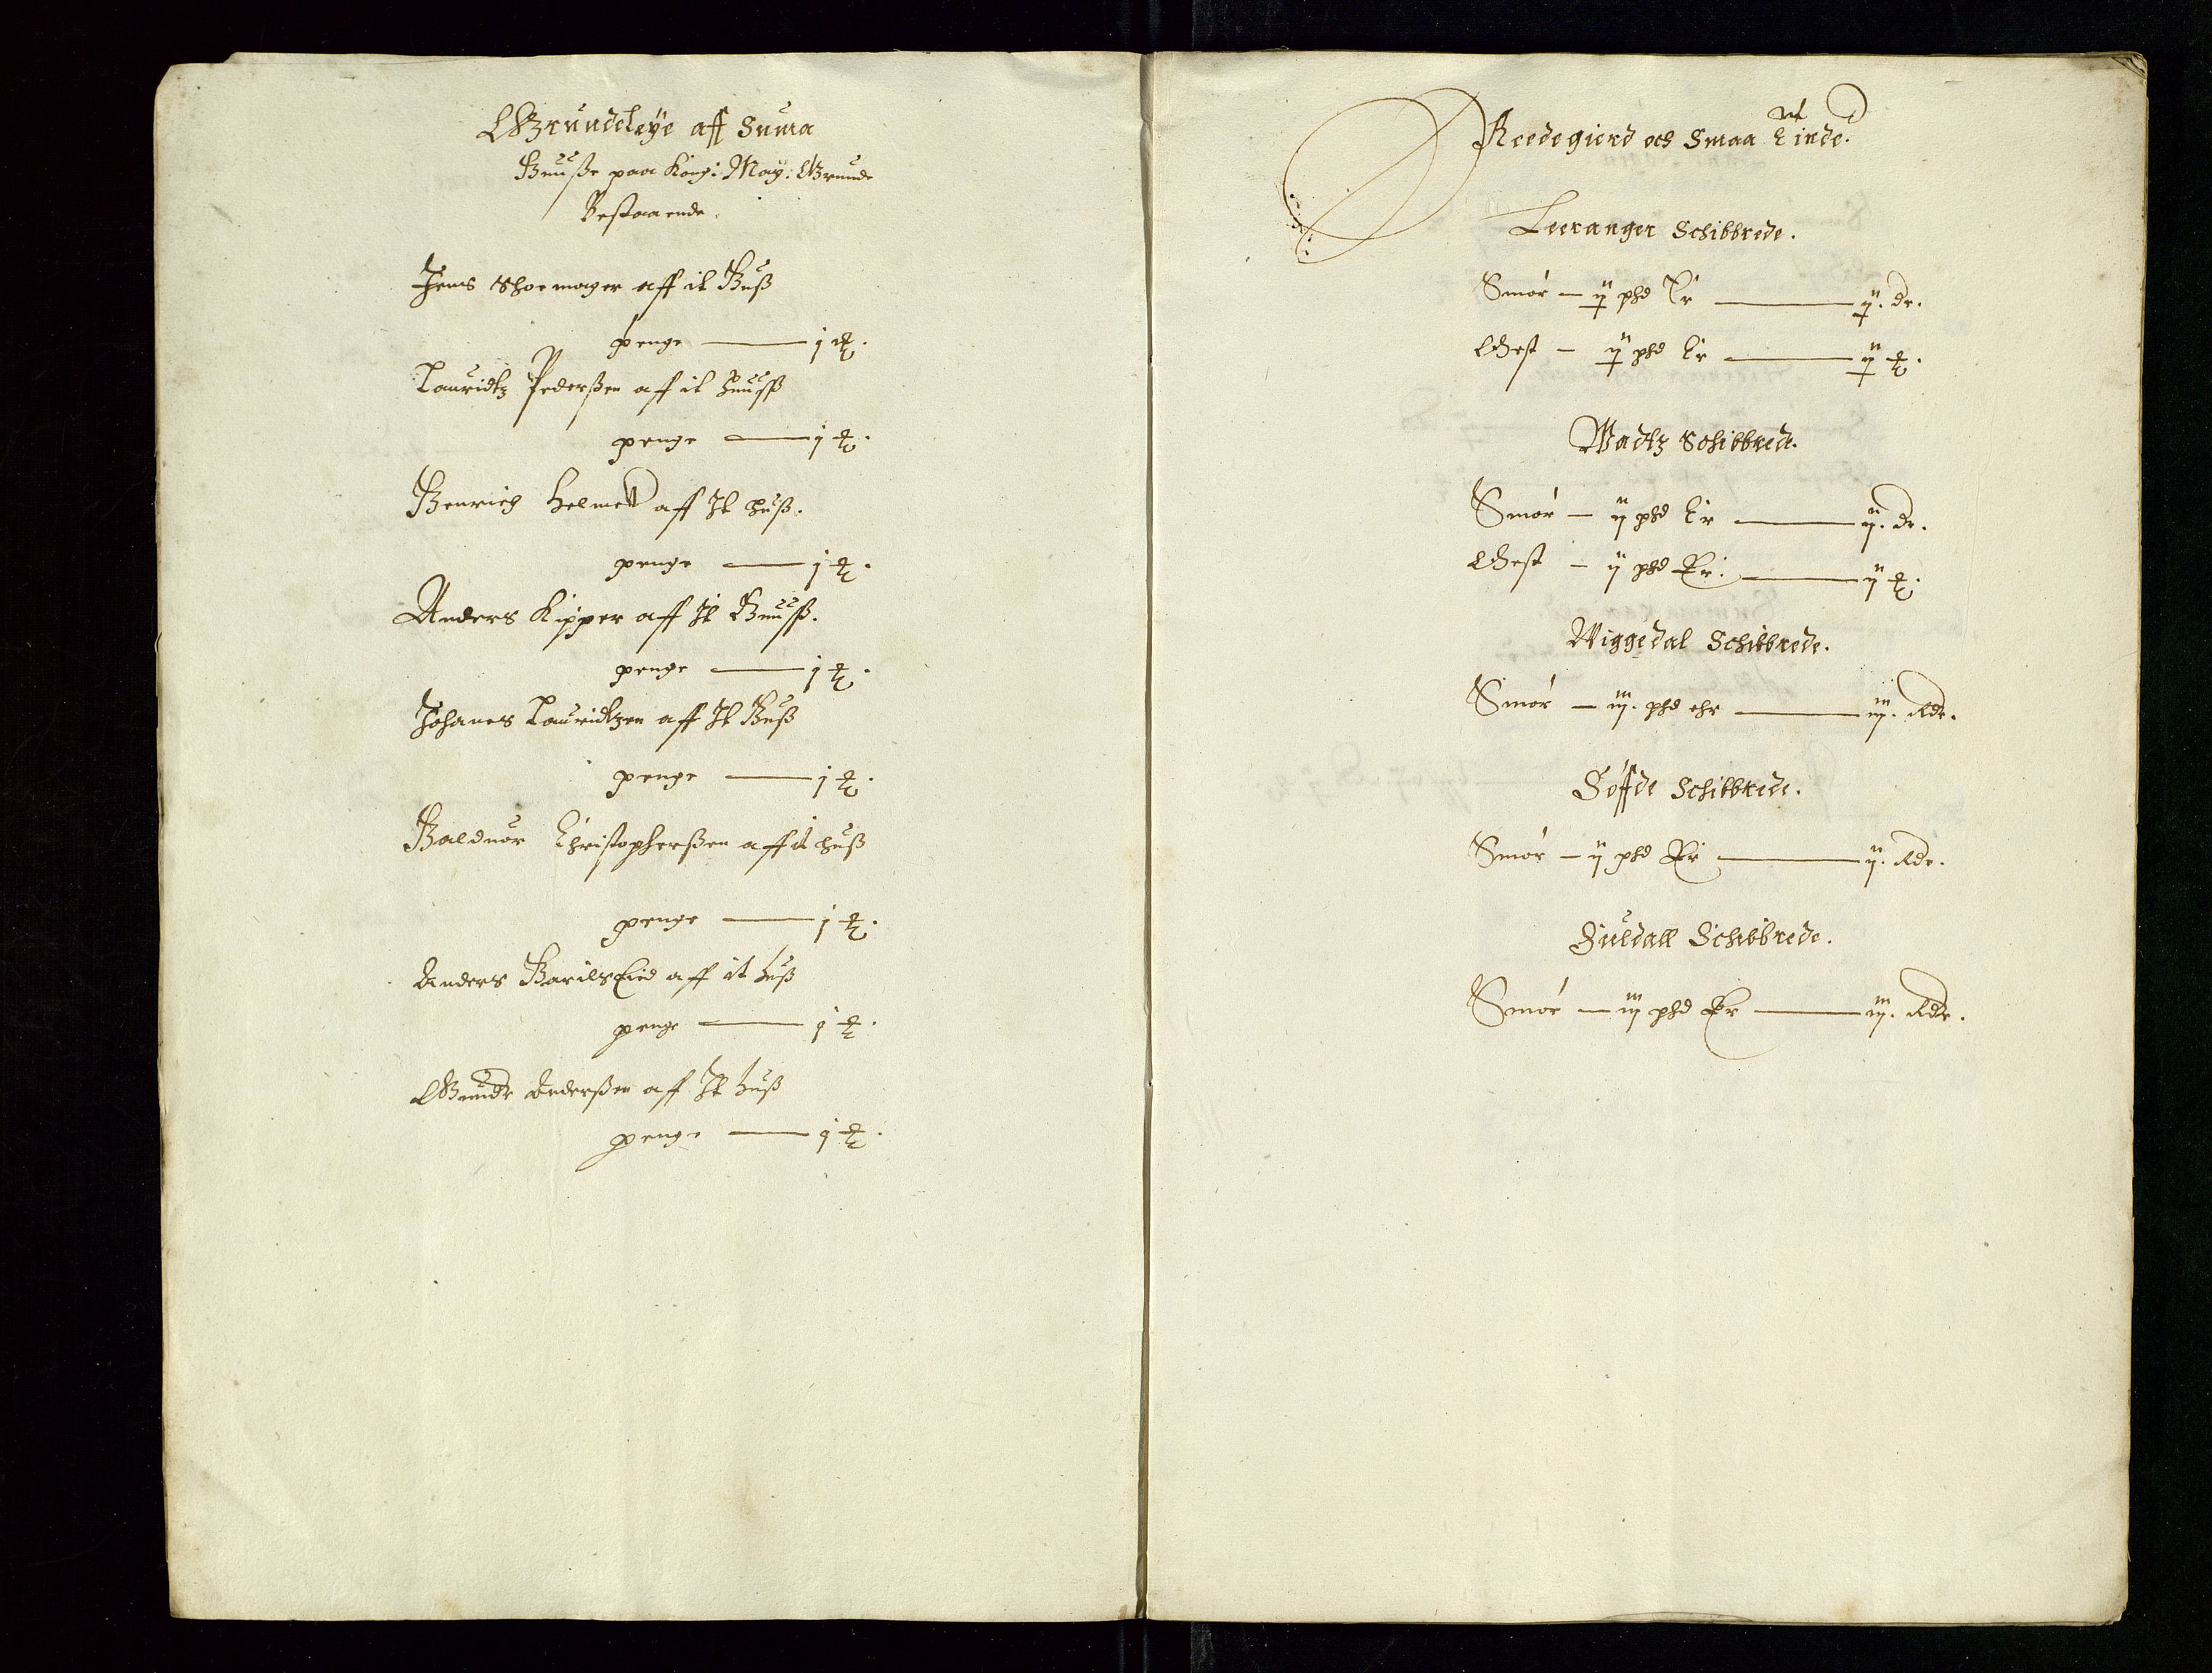 Grundeleye aff Smaa
Huusße paa Kong: May: Grunde
Bestaaende.
Jens Schoemager aff it Huß
penge — j
Lauridtz Pederßen aff it huusß
penge — j
Henrich Helmett aff It huß.
penge — j
Anders Kipper aff It Huusß.
penge — j
Johanes Lauridtzen aff It Huß
penge — j
Balduor Christopherßen aff it huß
penge — j
Anders aff it huß
penge — j
Anderßen aff It huß
penge — j
Reedegierd och Smaa
Leeranger Schibbrede.
Smör — ij phd Er — ij. dr.
Gest — ij phd Er — ij
Wadtz Schibbrede.
Smör — ij phd Er — ij. dr.
Gest — ij phd Er: — ij
Wiggedal Schibbrede.
Smör — iij. phd ehr — iij. Rdr.
Söffde Schibbrede.
Smör — ij phd Er — ij. Rdr.
Suldall Schibbrede.
Smör — iij phd Er — iij. Rdr.